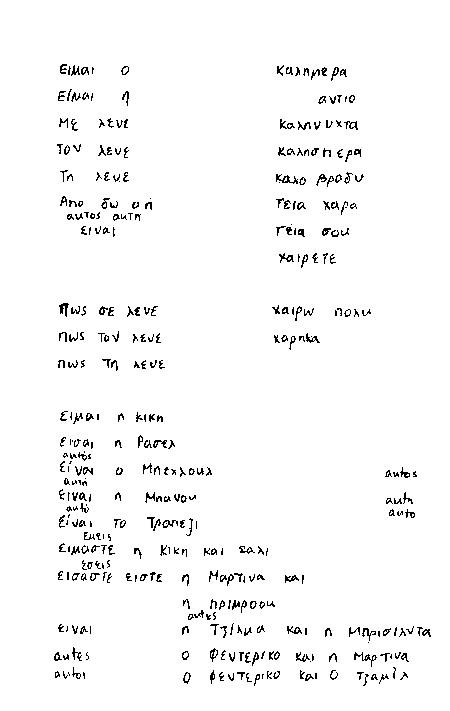 Ειμαι ο
Είμαι η
Με λενε
Τον λενε
Τη λενε
Απο δω ο η
αυτος αυτη
ειναι
Καλημερα
αντιο
Καληνυχτα
Καλησπερα
Καλο βραδυ
Γεια χαρα
Γεια σου
Χαιρετε
Πως σε λενε
Πως τον λενε
Πως τη λενε
Χαιρω πολυ
χαρηκα
Ειμαι η Κικη
Εισαι η Ρασελ
αυτός
Είναι ο Μπεχλουλ
αυτή
Ειναι η Μπανου
αυτό
Είναι το Τραπεζι
Εμεις
Ειμαστε η Κικη και Σαλι
Εσεις
Εισαστε ειστε η Μαρτινα και
η πριμροου
αυτες
Ειναι η Τζιλμα Και η Μπρισιλντα
αυτες ο Φεντερικο και η Μαρτινα
αυτοι ο Φεντερικο και ο Τζαμιλ
αυτος
αυτη
αυτο